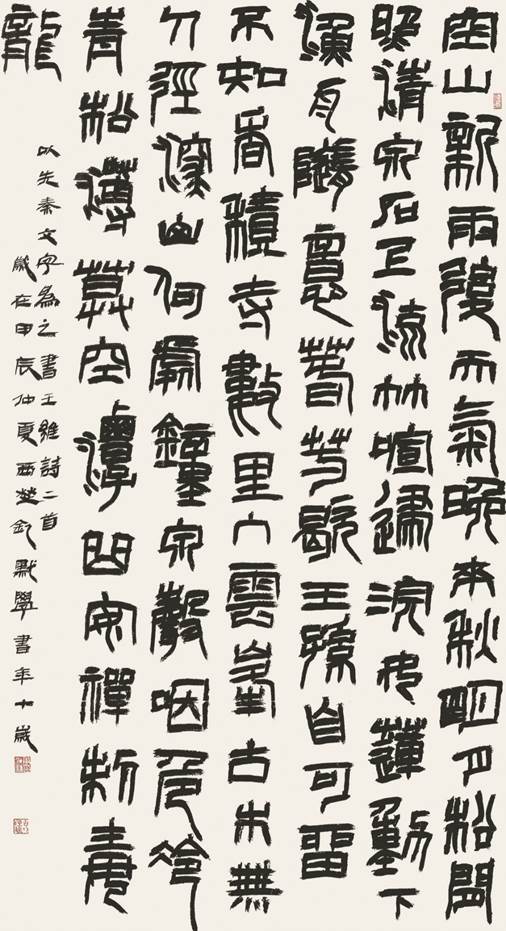 空山新雨後天氣晚來秋明月松間
照清泉石上流竹喧歸浣女蓮動下
漁舟隨意春芳歇王孫自可留
不知香積寺數里入雲峰古木無
人徑深山何處鐘泉聲咽危冷
青松薄暮空潭曲安禪制毒
龍
以先秦文字為之書王維詩二首
歲在甲辰仲夏西楚釗默學書年十歲